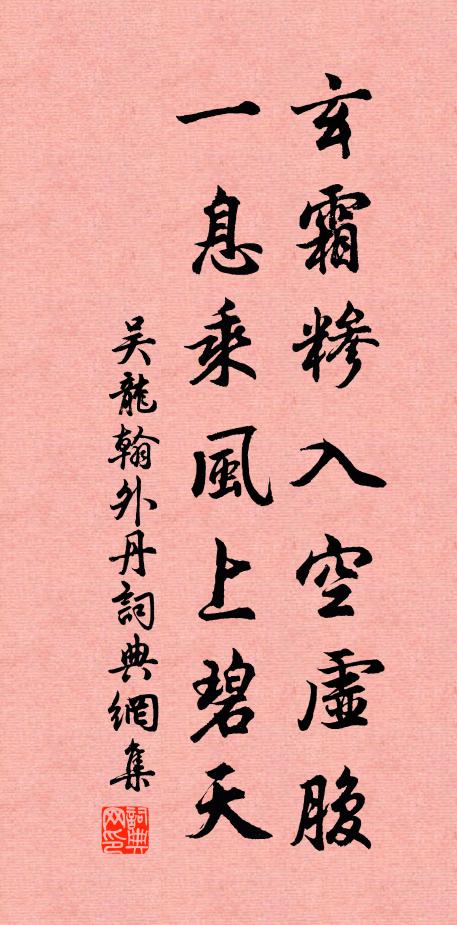 玄霜糁入空虛腹
一息乘風上碧天
吳龍翰外丹詞典網集
詞典网印